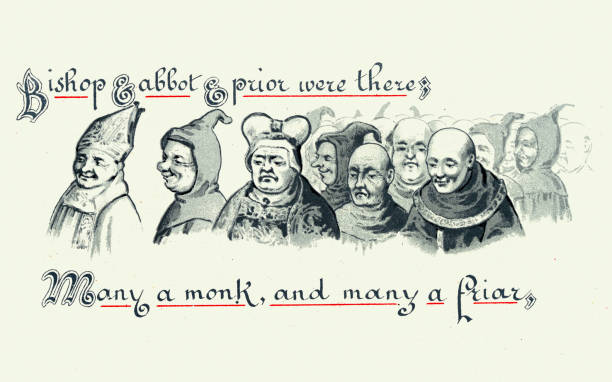 Bishop & abbot & prior were there;
Many a monk, and many a friar,